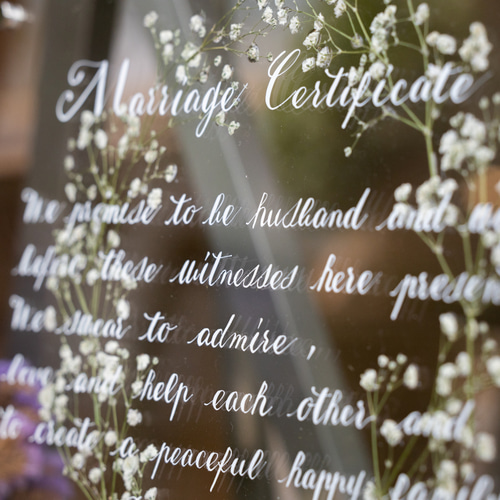 Marriage Certificate
We promise to be husband and
before these witnesses here present
We swear to admire,
love and help each other and
to create a peaceful happy